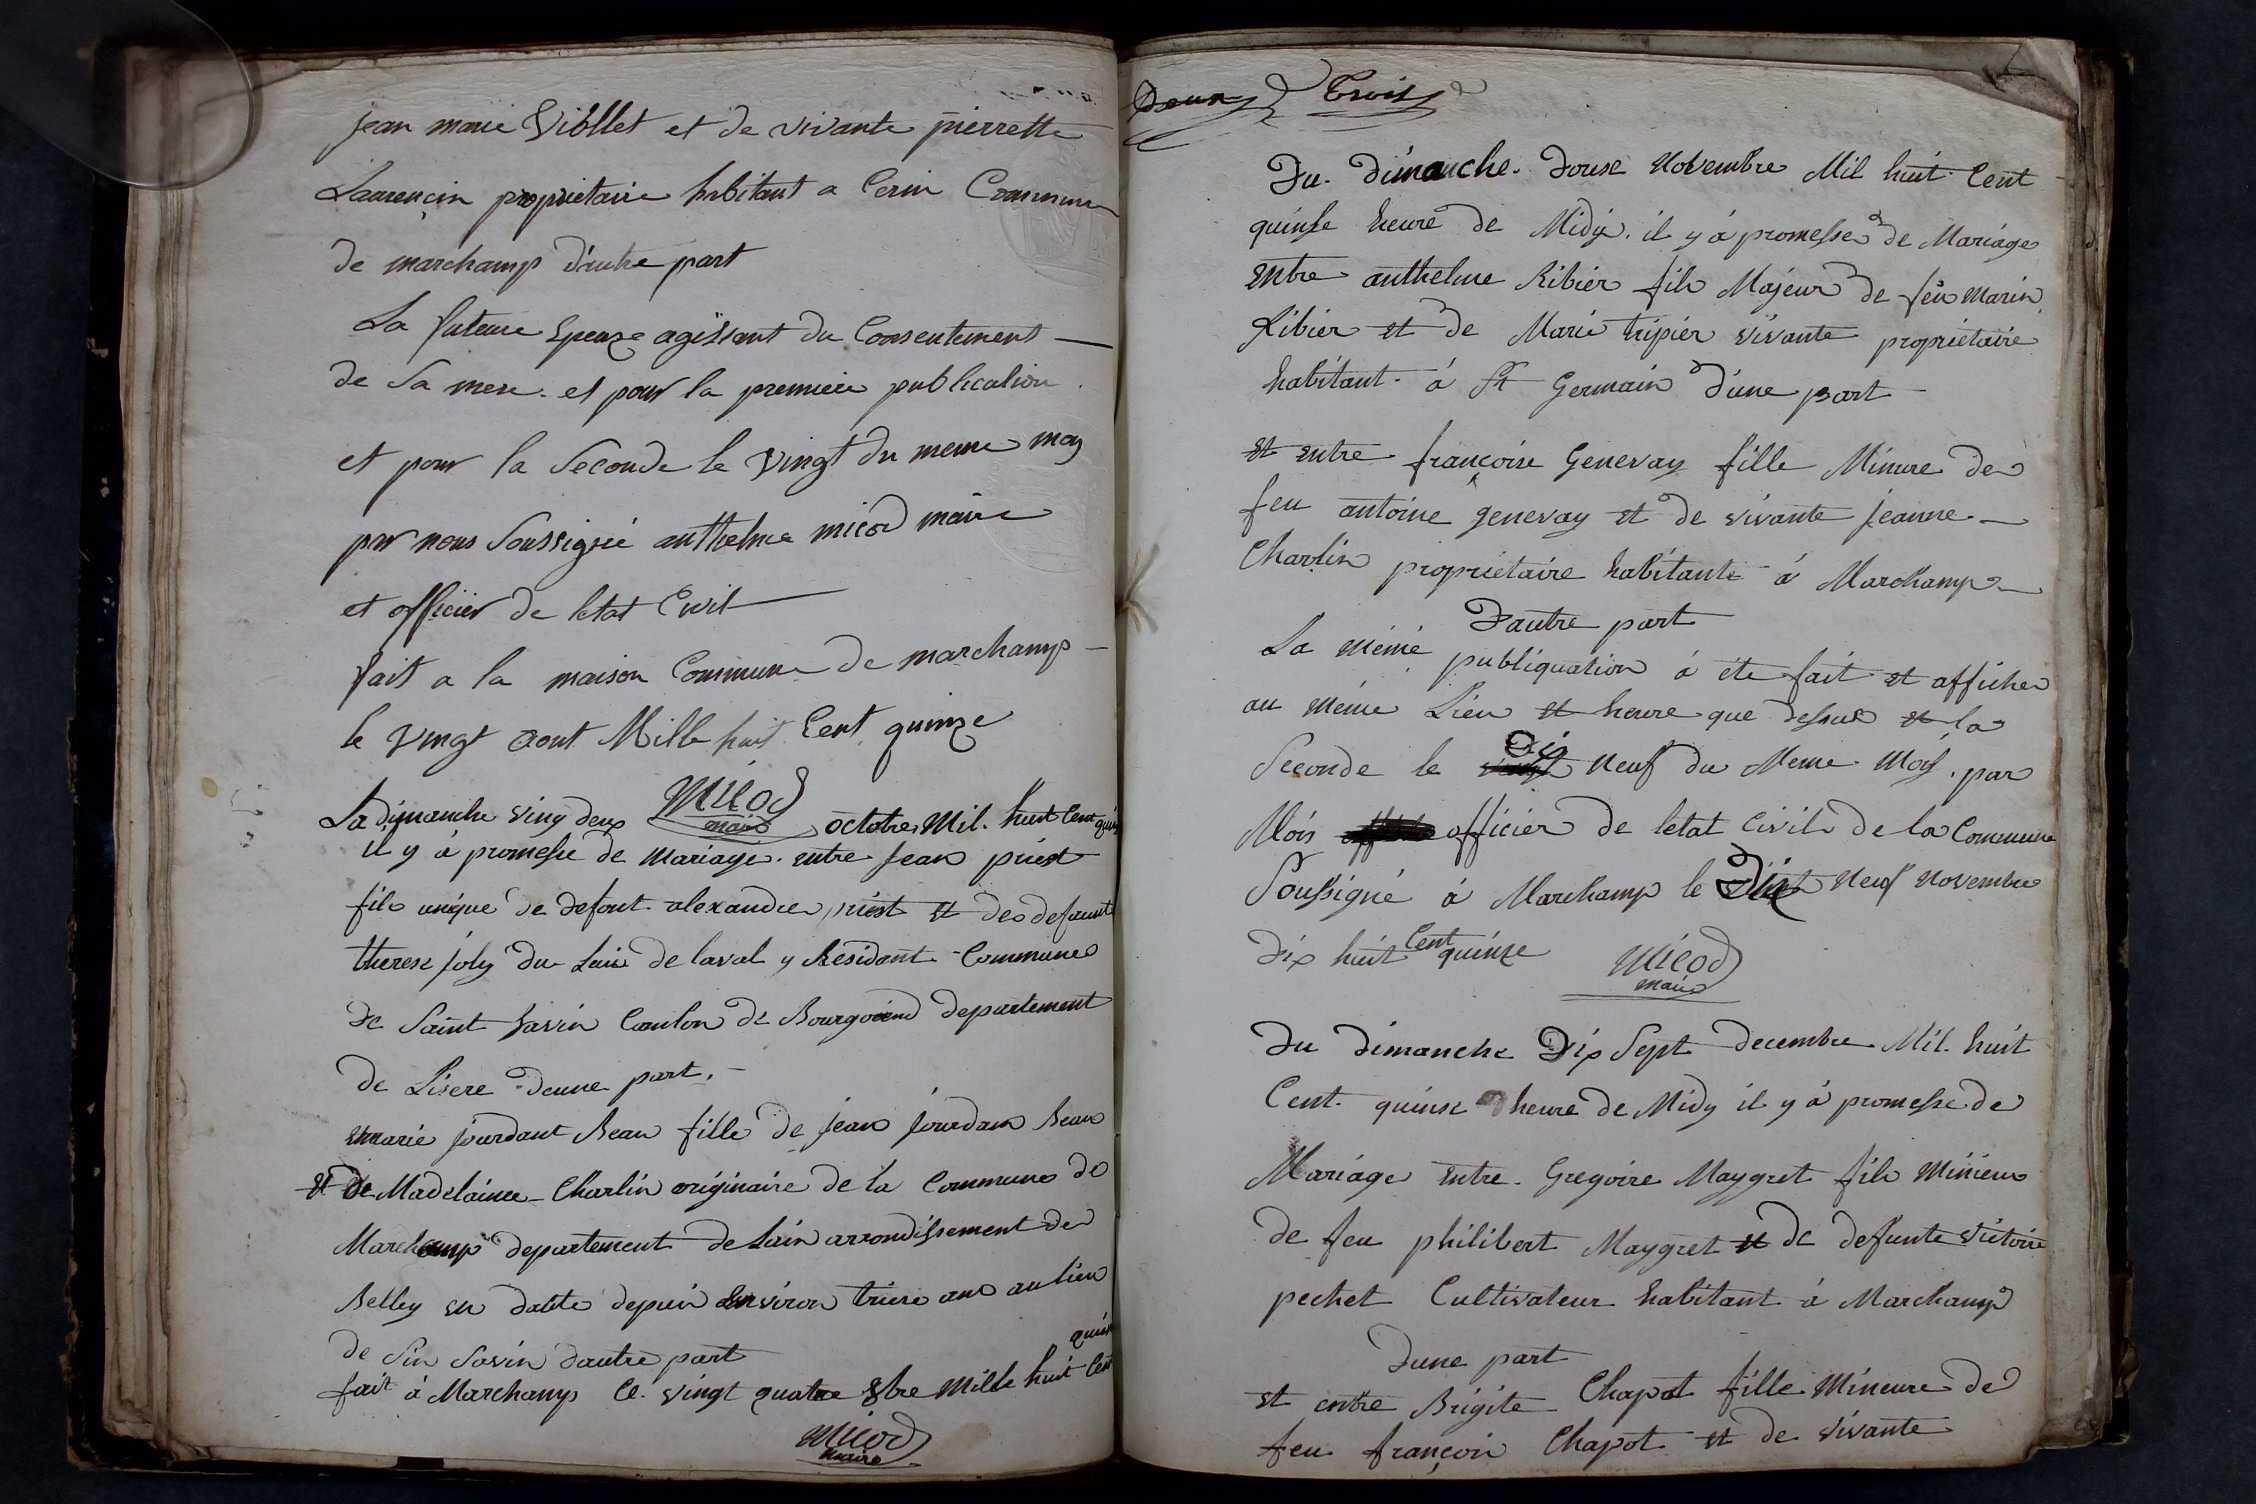 jean marie Viollet et de vivante pierrette
Laurençin propriétaire habitant a Cerin Commune
de marchamp d'autre part
La future Epouze agissant du Consentement
de sa mere. et pour la premiere publication
et pour la Seconde le vingt du meme moy
par nous Soussigné anthelme micod maire
et officier de letat Civil
fait a la maison Commune de marchamp
le vingt aout Mille huit Cent quinze
Micod
maire
La dimanche ving deux octobre Mil. huit Cent quinze
il y à promesse de Mariage. entre jean priest
fils unique de defont alexandre priest et de defunte
therese joly du Lieu de laval y Residant Commune
de Saint Savin Canton de Bourgoiend departement
de Lisere deune part.
marie jourdant Beau fille de jean jourdan Beau
et de Madelainee Charlin originaire de la Commune de
Marchamp departement de Lain arrondissement de
Belley en datte depuis environ trieze ans au lieu
de Sin Savin dautre part
fait à Marchamp Ce. vingt quatre 8bre Mille huit Cent quinze
Micod
maire
Deux Trois
Du dimanche. douse Novembre Mil huit Cent
quinse heure de Midy. il y á promesse de Mariage
Entre anthelme Ribier fils Majeur de feu Marin
Ribier et de Marie tripier vivante proprietaire
habitant à St Germain d'une part
et entre françoise Genevay fille Minure de
feu antoine genevay et de vivante jeanne
Charlin proprietaire habitante à Marchamp
Dautre part
La même publiquation à ete fait et afficher
au même Lieu et heure que dessus et la
Seconde le Dis Neuf du Meme Moy. par
Mois officier de letat Civil de la Commune
Soussigné à Marchamp le Dix Neuf Novembre
Dix huit Cent quinze
Micod
maire
Du dimanche Dix Sept decembre Mil. huit
Cent. quinse heure de Midy il y à promesse de
Mariage entre. Gregoire Maygret fils Minieur
de feu philibert Maygret et de defunte victoire
pechet Cultivateur habitant à Marchamp
Dune part
et entre Brigite Chapot fille Mineure de
feu françois Chapot et de vivante